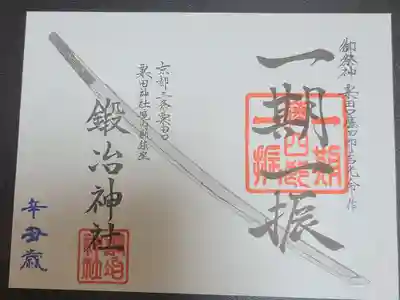 御祭神 粟田口藤四郎吉光命 作
一期一振
京都三条粟田口
粟田神社境内鎮座
鍛冶神社
辛丑歳